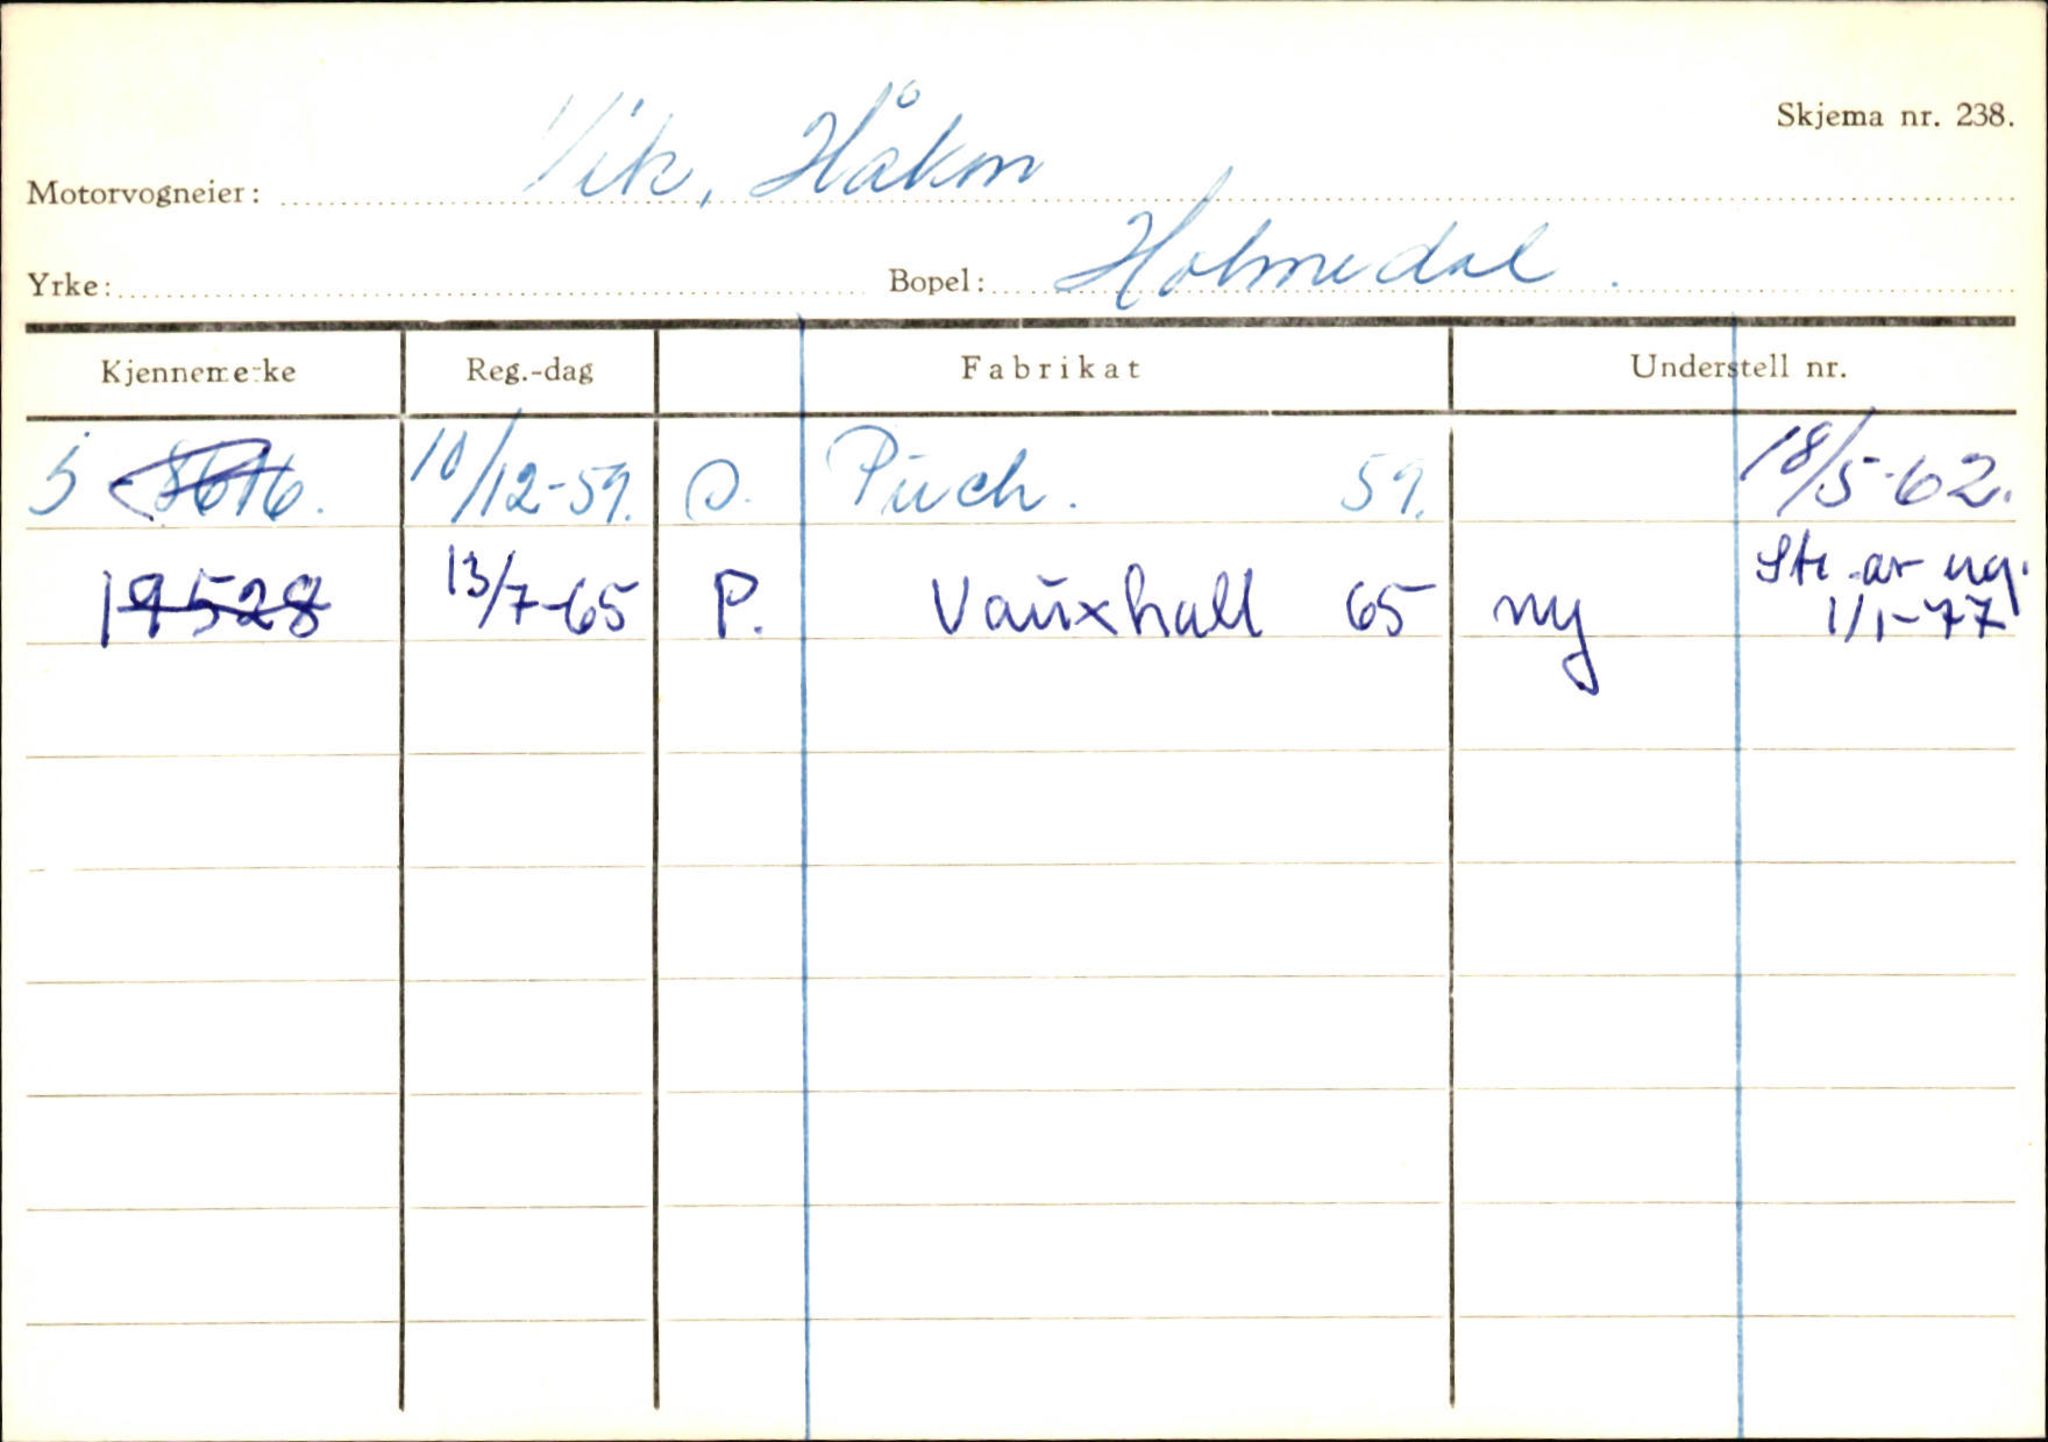 Skjema nr. 238.
Motorvogneier: Vik, Håkon
Yrke: Bopel: Holmedal.
Kjennemerke Reg.-dag Fabrikat Understell nr.
S 10/12-59. Puch. 59. 18/5-62.
19528 13/7-65 P. Vauxhall 65 ny
1/1-77